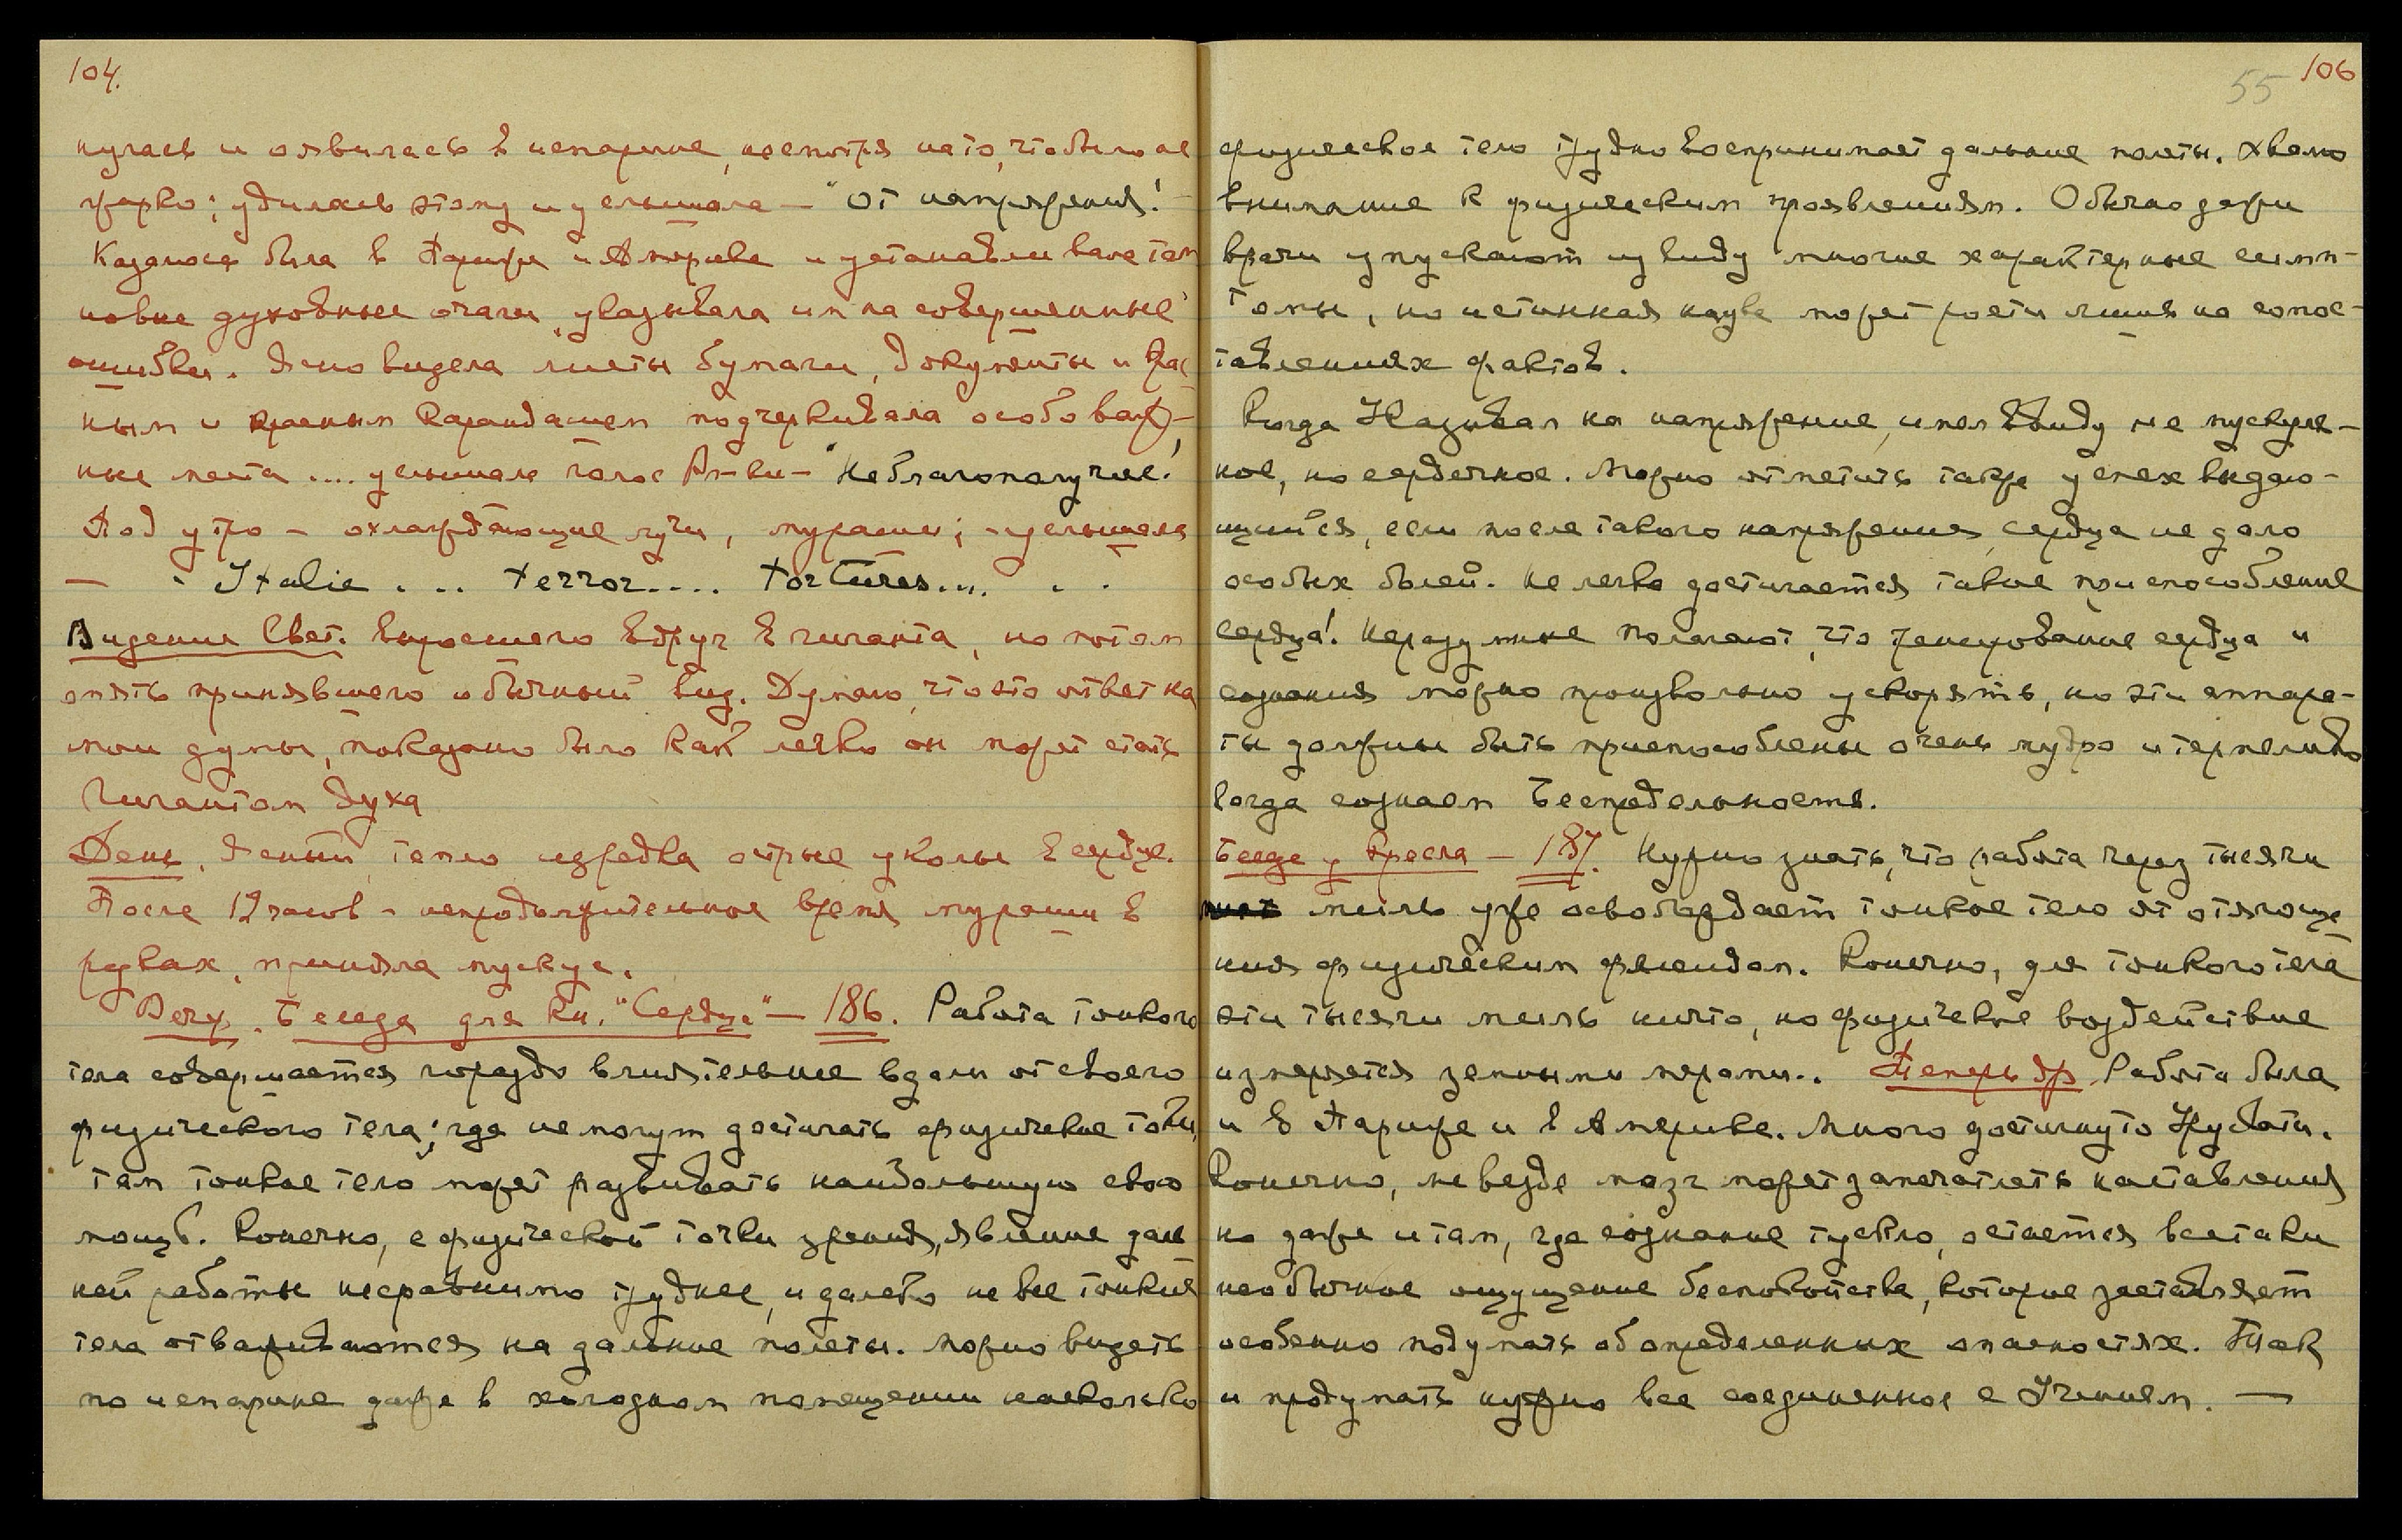 104.
нулась и оявилась в испарине, несмотря на то, что было не
жарко; удивляясь этому и услышала — "от напряжения!
Казалось была в Париже и Америке и устанавливала там
новые духовные очаги, указывала им на совершенные
ошибки. Ясно видела листы бумаги, документы и крас
ным и красным карандашем подчеркивала особо важ-
ные места .... услышала голос Ал-ви — "Неблагополучие!
Под утро — охлаждающие лучи, мураши; — услышала
— - Italie . .. terror.... tortures.... . .
Видение Свет. выросшего вдруг в гиганта, но потом
опять принявшего обычный вид. Думаю, что это ответ на
мои думы, показано было как легко он может стать
гигантом духа
День. Ясный, тепло изредка острые уколы в сердце.
После 12 часов – непродолжительное время мураши в
руках, приняла мускус.
Вечер. Беседа для кн. "Сердце" — 186. Работа тонкого
тела совершается гораздо влиятельнее вдали от своего
физического тела; где не могут достигать физические токи,
там тонкое тело может развивать наибольшую свою
мощь. Конечно, с физической точки зрения, явление даль
ней работы несравнимо труднее, и далеко не все тонкия
тела отваживаются на дальние полеты. Можно видеть
по испарине даже в холодном помещении насколько
55 106
физическое тело трудно воспринимает дальние полеты. Хвалю
внимание к физическим проявлениям. Обычно даже
врачи упускают из виду многие характерные симп-
томы, но истинная наука может расти лишь на сопос-
тавлениях фактов.
Когда Указывал на напряжение, имел ввиду не мускуль-
ное, но сердечное. Можно отметить также успех выдаю-
щийся, если после такого напряжения, сердце не дало
особых болей. Не легко достигается такое приспособление
сердца! Неразумные полагают, что трансмутование сердца и
сознания можно произвольно ускорять, но эти аппара-
ты должны быть приспособлены очень мудро и терпеливо
когда сознаем Беспредельность.
Беседа у кресла — 187. Нужно знать, что работа через тысячи
миль уже освобождает тонкое тело от отягоще
ния физическим флюидом. Конечно, для тонкого тела
эти тысячи миль ничто, но физическое воздействие
измеряется земными мерами.. Теперь др. Работа была
и в Париже и в Америке. Много достигнуто Урусвати.
Конечно, не везде мозг может запечатлеть наставления
но даже и там, где сознание тускло, остается всетаки
необычное ощущение беспокойства, которое заставляет
особенно подумать об определенных опасностях. Так
и продумать нужно все соединенное с Учением. —